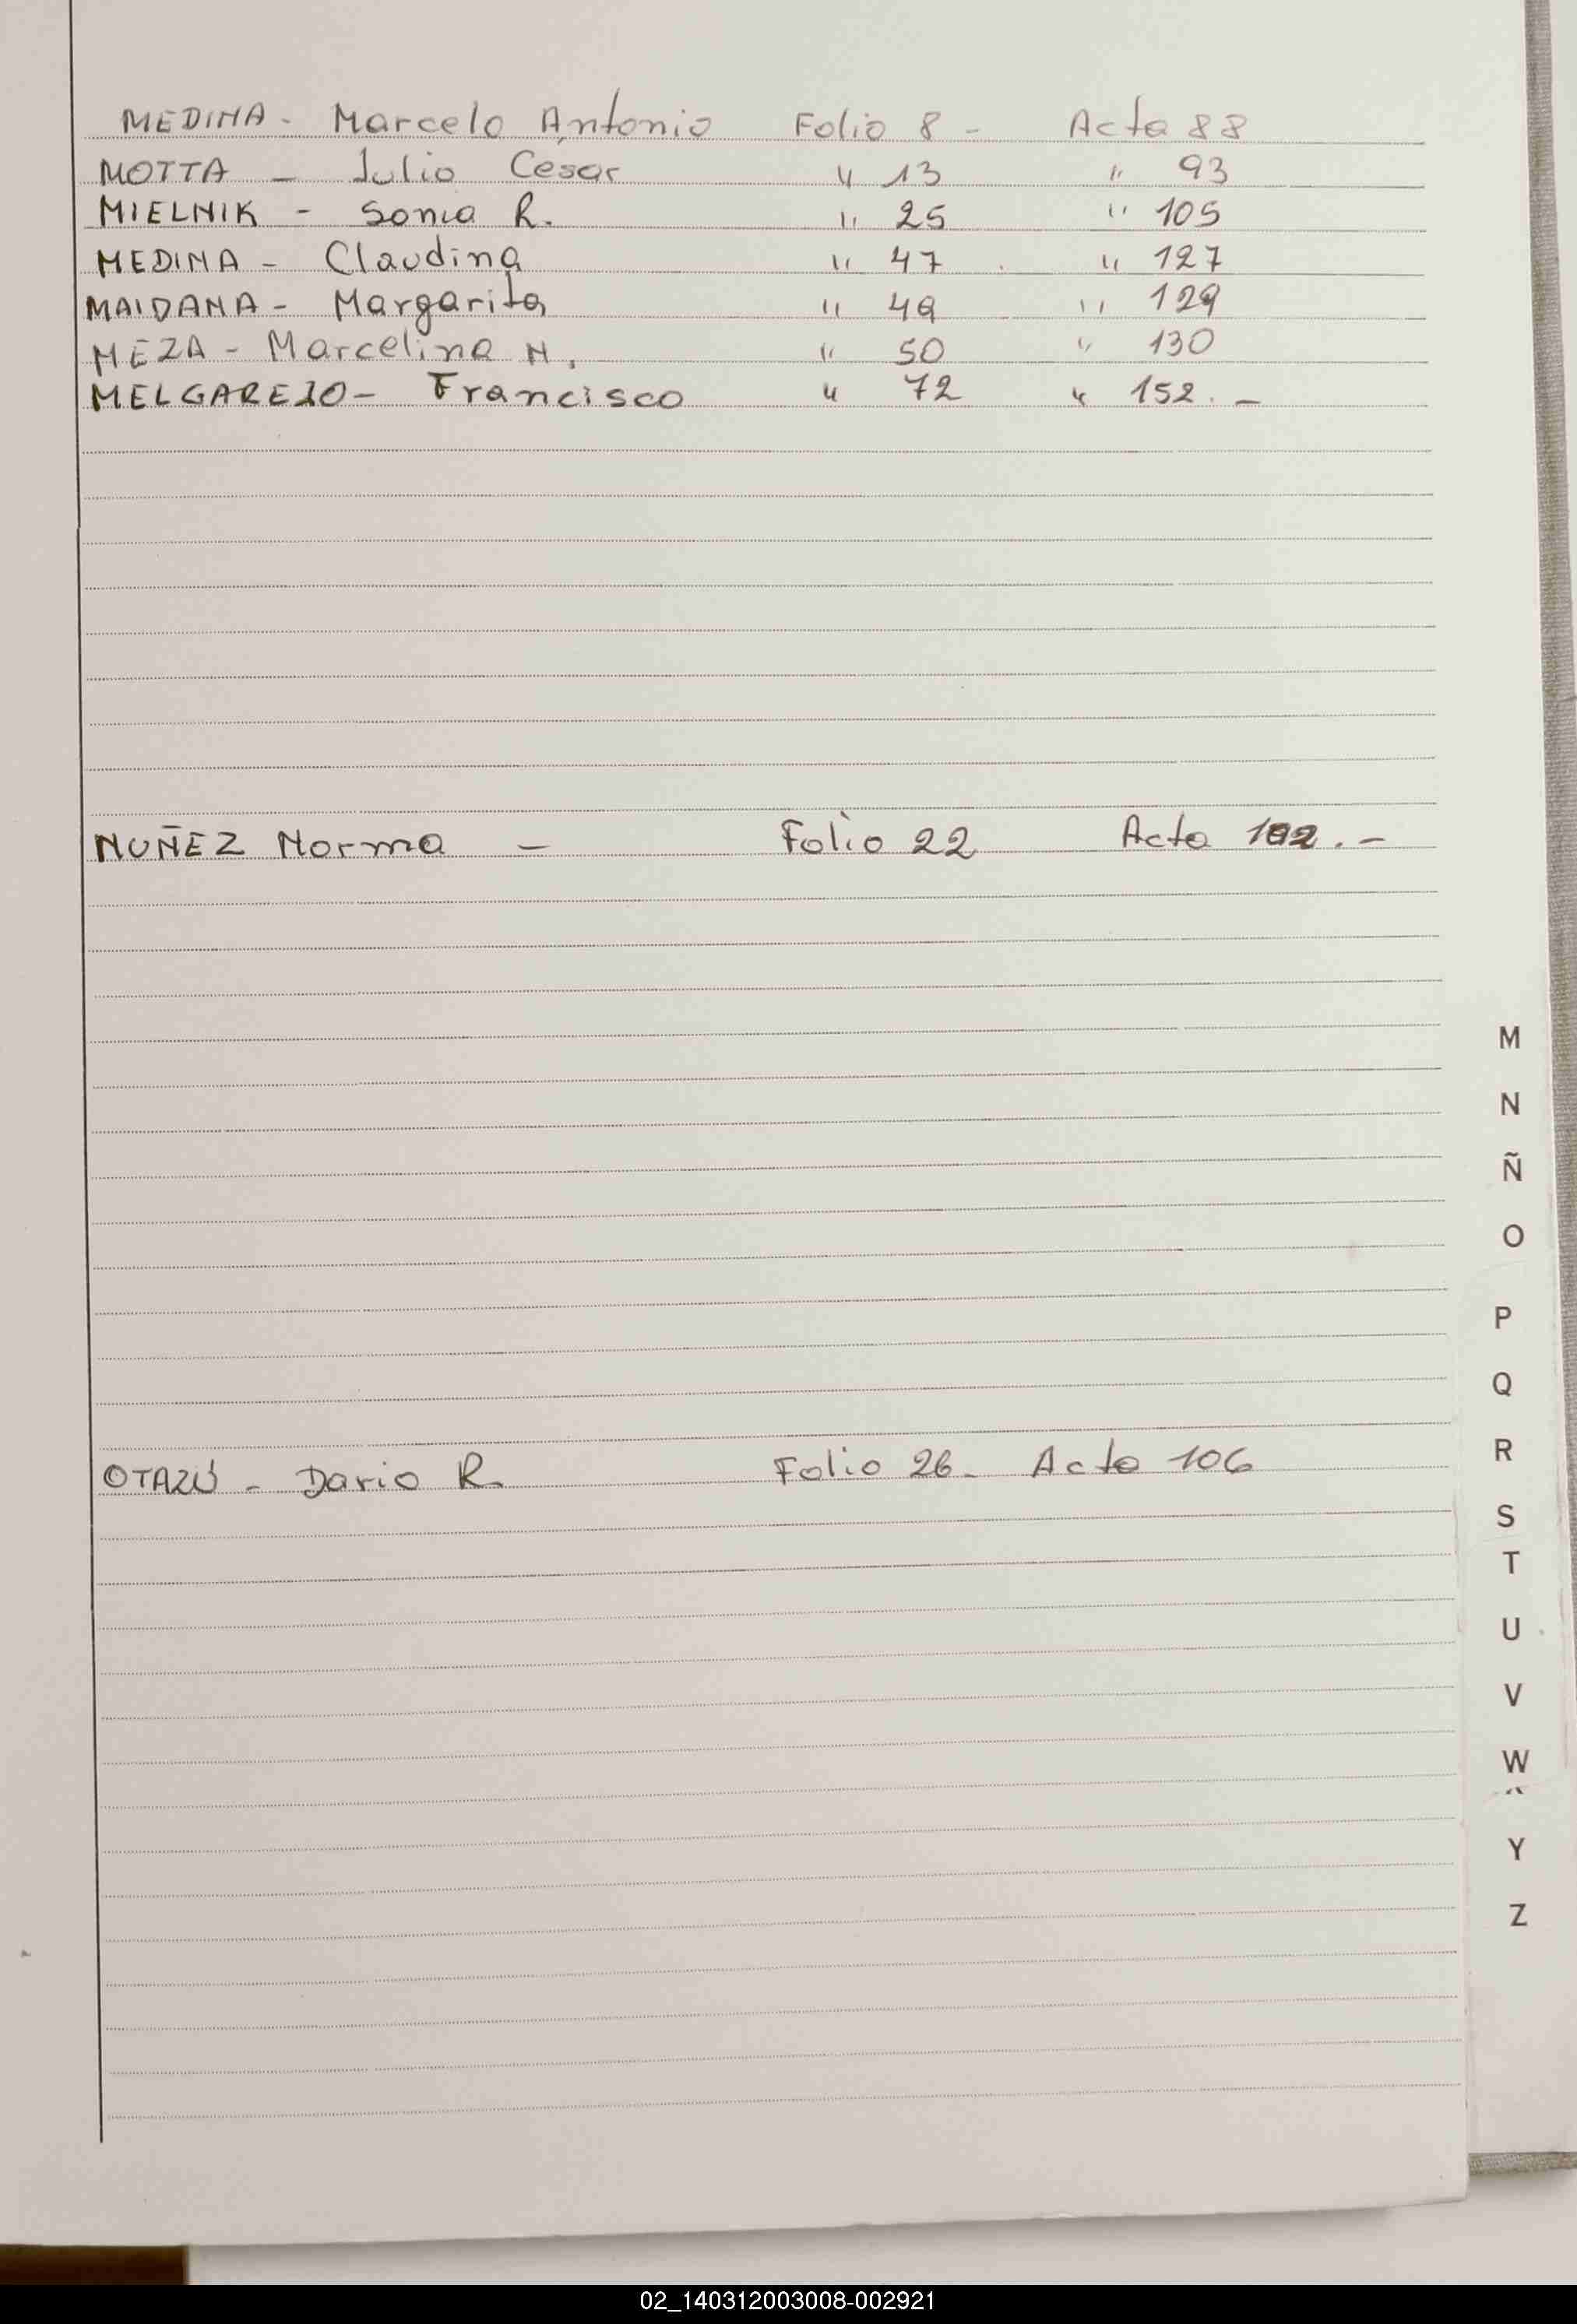 MEDINA - Marcelo Antonio Folio 8 - Acta 88
MOTTA - Julio Cesar " 13 " 93
MIELNIK - Sonia R. " 25 " 105
MEDINA - Claudina " 47 " 127
MAIDANA - Margarita " 49 " 129
MEZA - Marcelina N. " 50 " 130
MELGAREJO - Francisco " 72 " 152. -
NUÑEZ Norma - Folio 22 Acta 102. -
M
N
Ñ
O
P
Q
R
OTAZÚ - Dario R. Folio 26 - Acta 106
S
T
U
V
W
Y
Z
02_140312003008-002921